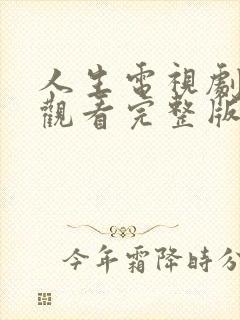 人生電視劇
觀看完整版
今年霜降時分